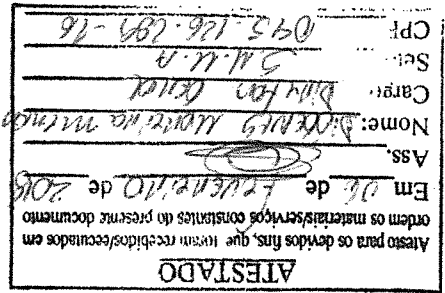 ATESTADO
Atesto para os devidos fins, que foram recebidos/executados em
ordem os materiais/serviços constantes do presente documento
Em 06 de FEVEREIRO de 2018
Ass.
Nome: Moreira
Cargo: Geral
Set.: S.M.U.A
CPF 045.126.